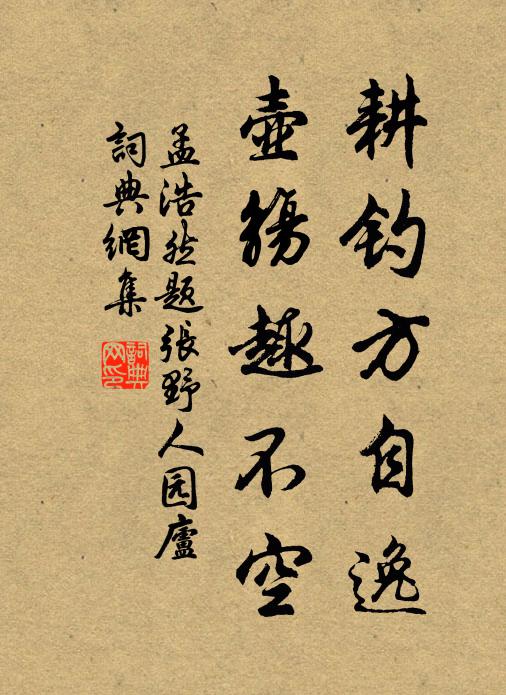 耕钓方自逸
壶觞趣不空
孟浩然题張野人园廬
詞典網集
詞典网印